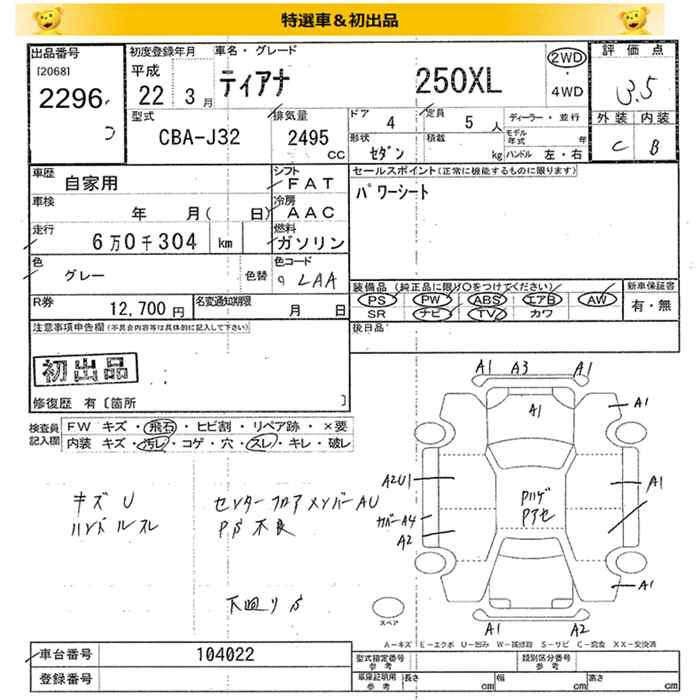 特選車&初出品
出品番号 初度登録年月 車名・グレード
[2068] 平成 22 3月 ティアナ 250XL 2WD・4WD 評価点
2296 3.5
型式 CBA-J32 排気量 2495 CC ドア 4 定員 5 人 ディーラー・並行 外装 内装
形状 セダン 積載 kg モデル年式 年 ハンドル 左・右 C B
車歴 自家用 シフト FAT セールスポイント(正常に機能するものに限ります)
車検 年 月( 日) 冷房 AAC パワーシート
走行 6万0千304 km 燃料 ガソリン
色 グレー 色替 色コード LAA
装備品(純正品に限り○をつけてください) 新車保証書
R券 12,700円 名変通知期限 月 日 PS PW ABS エアB AW 有・無
SR ナビ TV カワ
注意事項申告欄(不具合内容等は具体的に記入して下さい) 後日品
初出品
修復歴 有〔箇所 〕
検査員記入欄 FW キズ・飛石・ヒビ割・リペア跡・×要
内装 キズ・汚レ・コゲ・穴・スレ・キレ・破レ
A1 A3 A1
A1 A1
A2U1 A1
カバーA4 Pハゲ
A2 Pアセ
A1
A1 A2
キズU センターフロアメンバーAU
ハンドルスレ PS不良
下廻りS
スペア
A-キズ E-エクボ U-凹み W-補修跡 S-サビ C-腐食 XX-交換済
車台番号 104022 型式指定番号 参考 類別区分番号 参考
登録番号 車庫証明用 参考 長さ cm 幅 cm 高さ cm